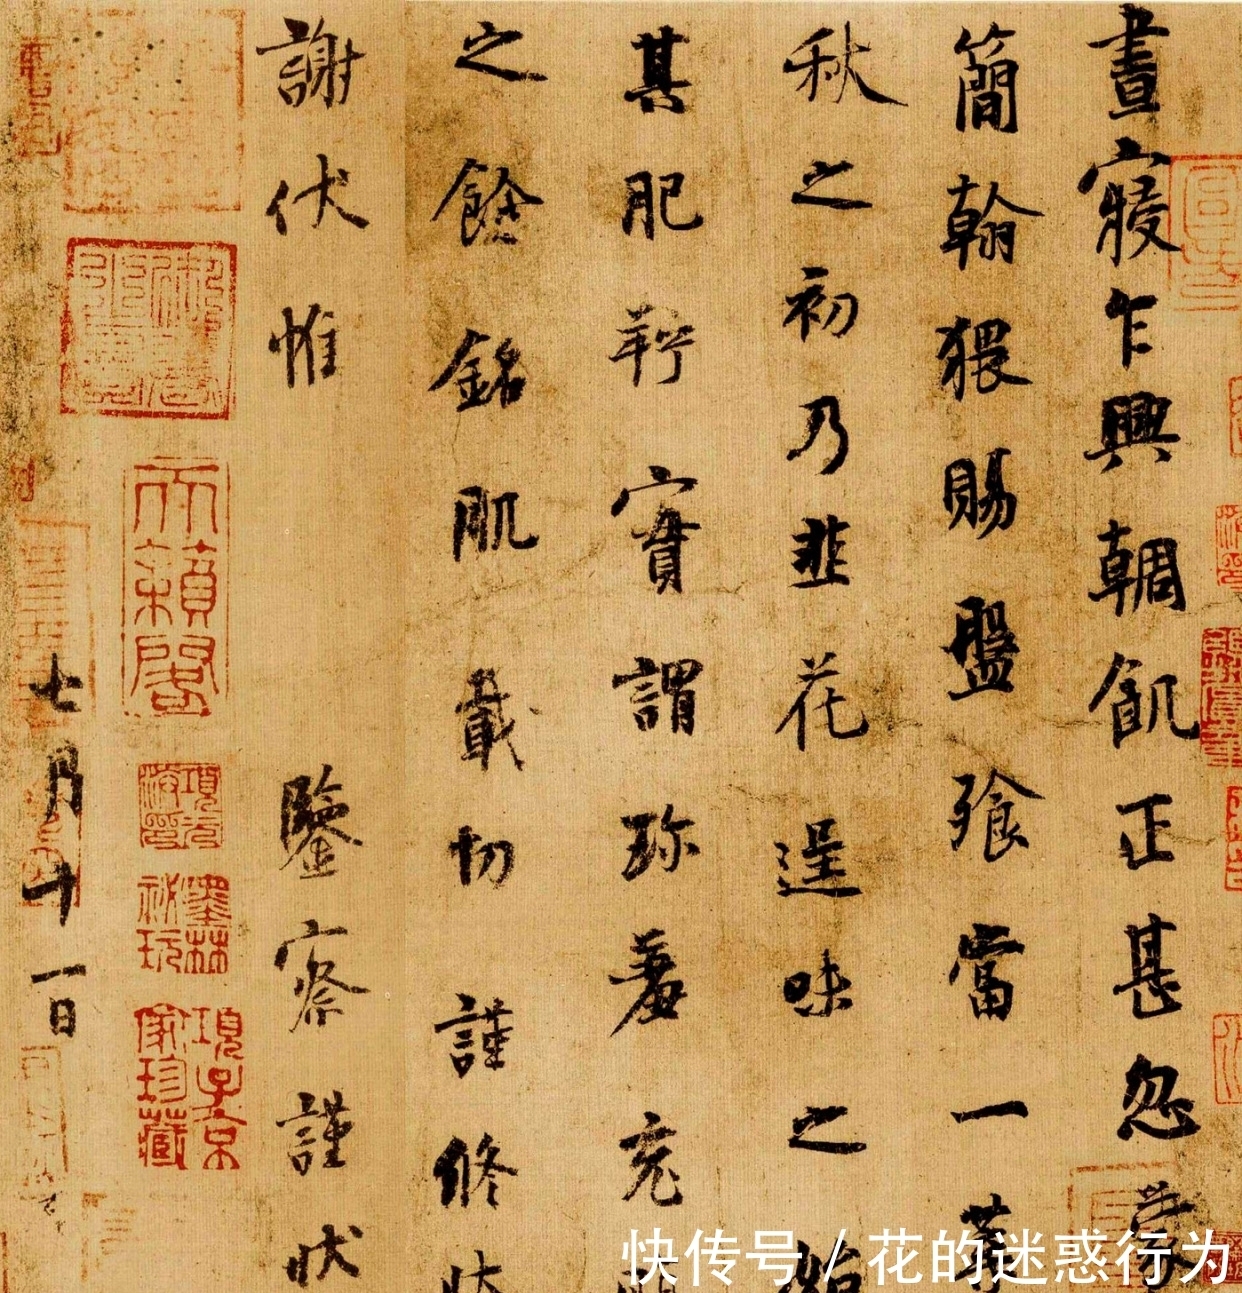 晝寢乍興輖飢正甚忽蒙
簡翰猥賜盤飧當一葉
秋之初乃韭花逞味之始
其肥羜實謂珎羞充
之餘銘肌載切謹修狀
謝伏惟 鑒察謹狀
七月十一日
天籟閣
項子京家珍藏
墨林祕玩
快传号 / 花的迷惑行为